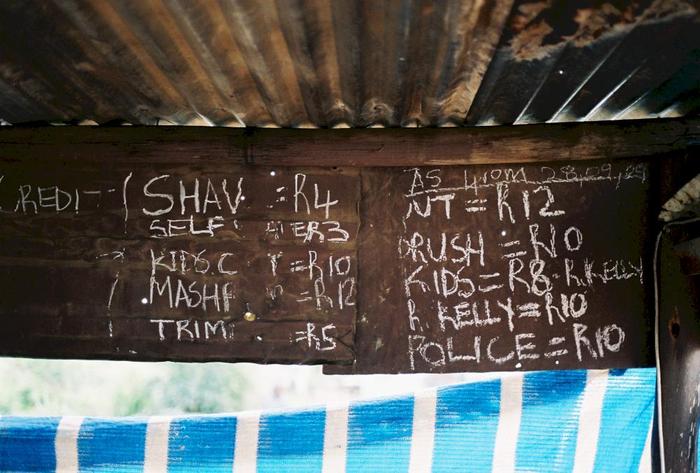 SHAV =R4
SELF ER3
KIDS.C =R10
MASH =R12
TRIM =R5
AS From 28,29,
NT = R12
RUSH = R10
KIDS = R8 - R.KELLY
R. KELLY = R10
POLICE = R10